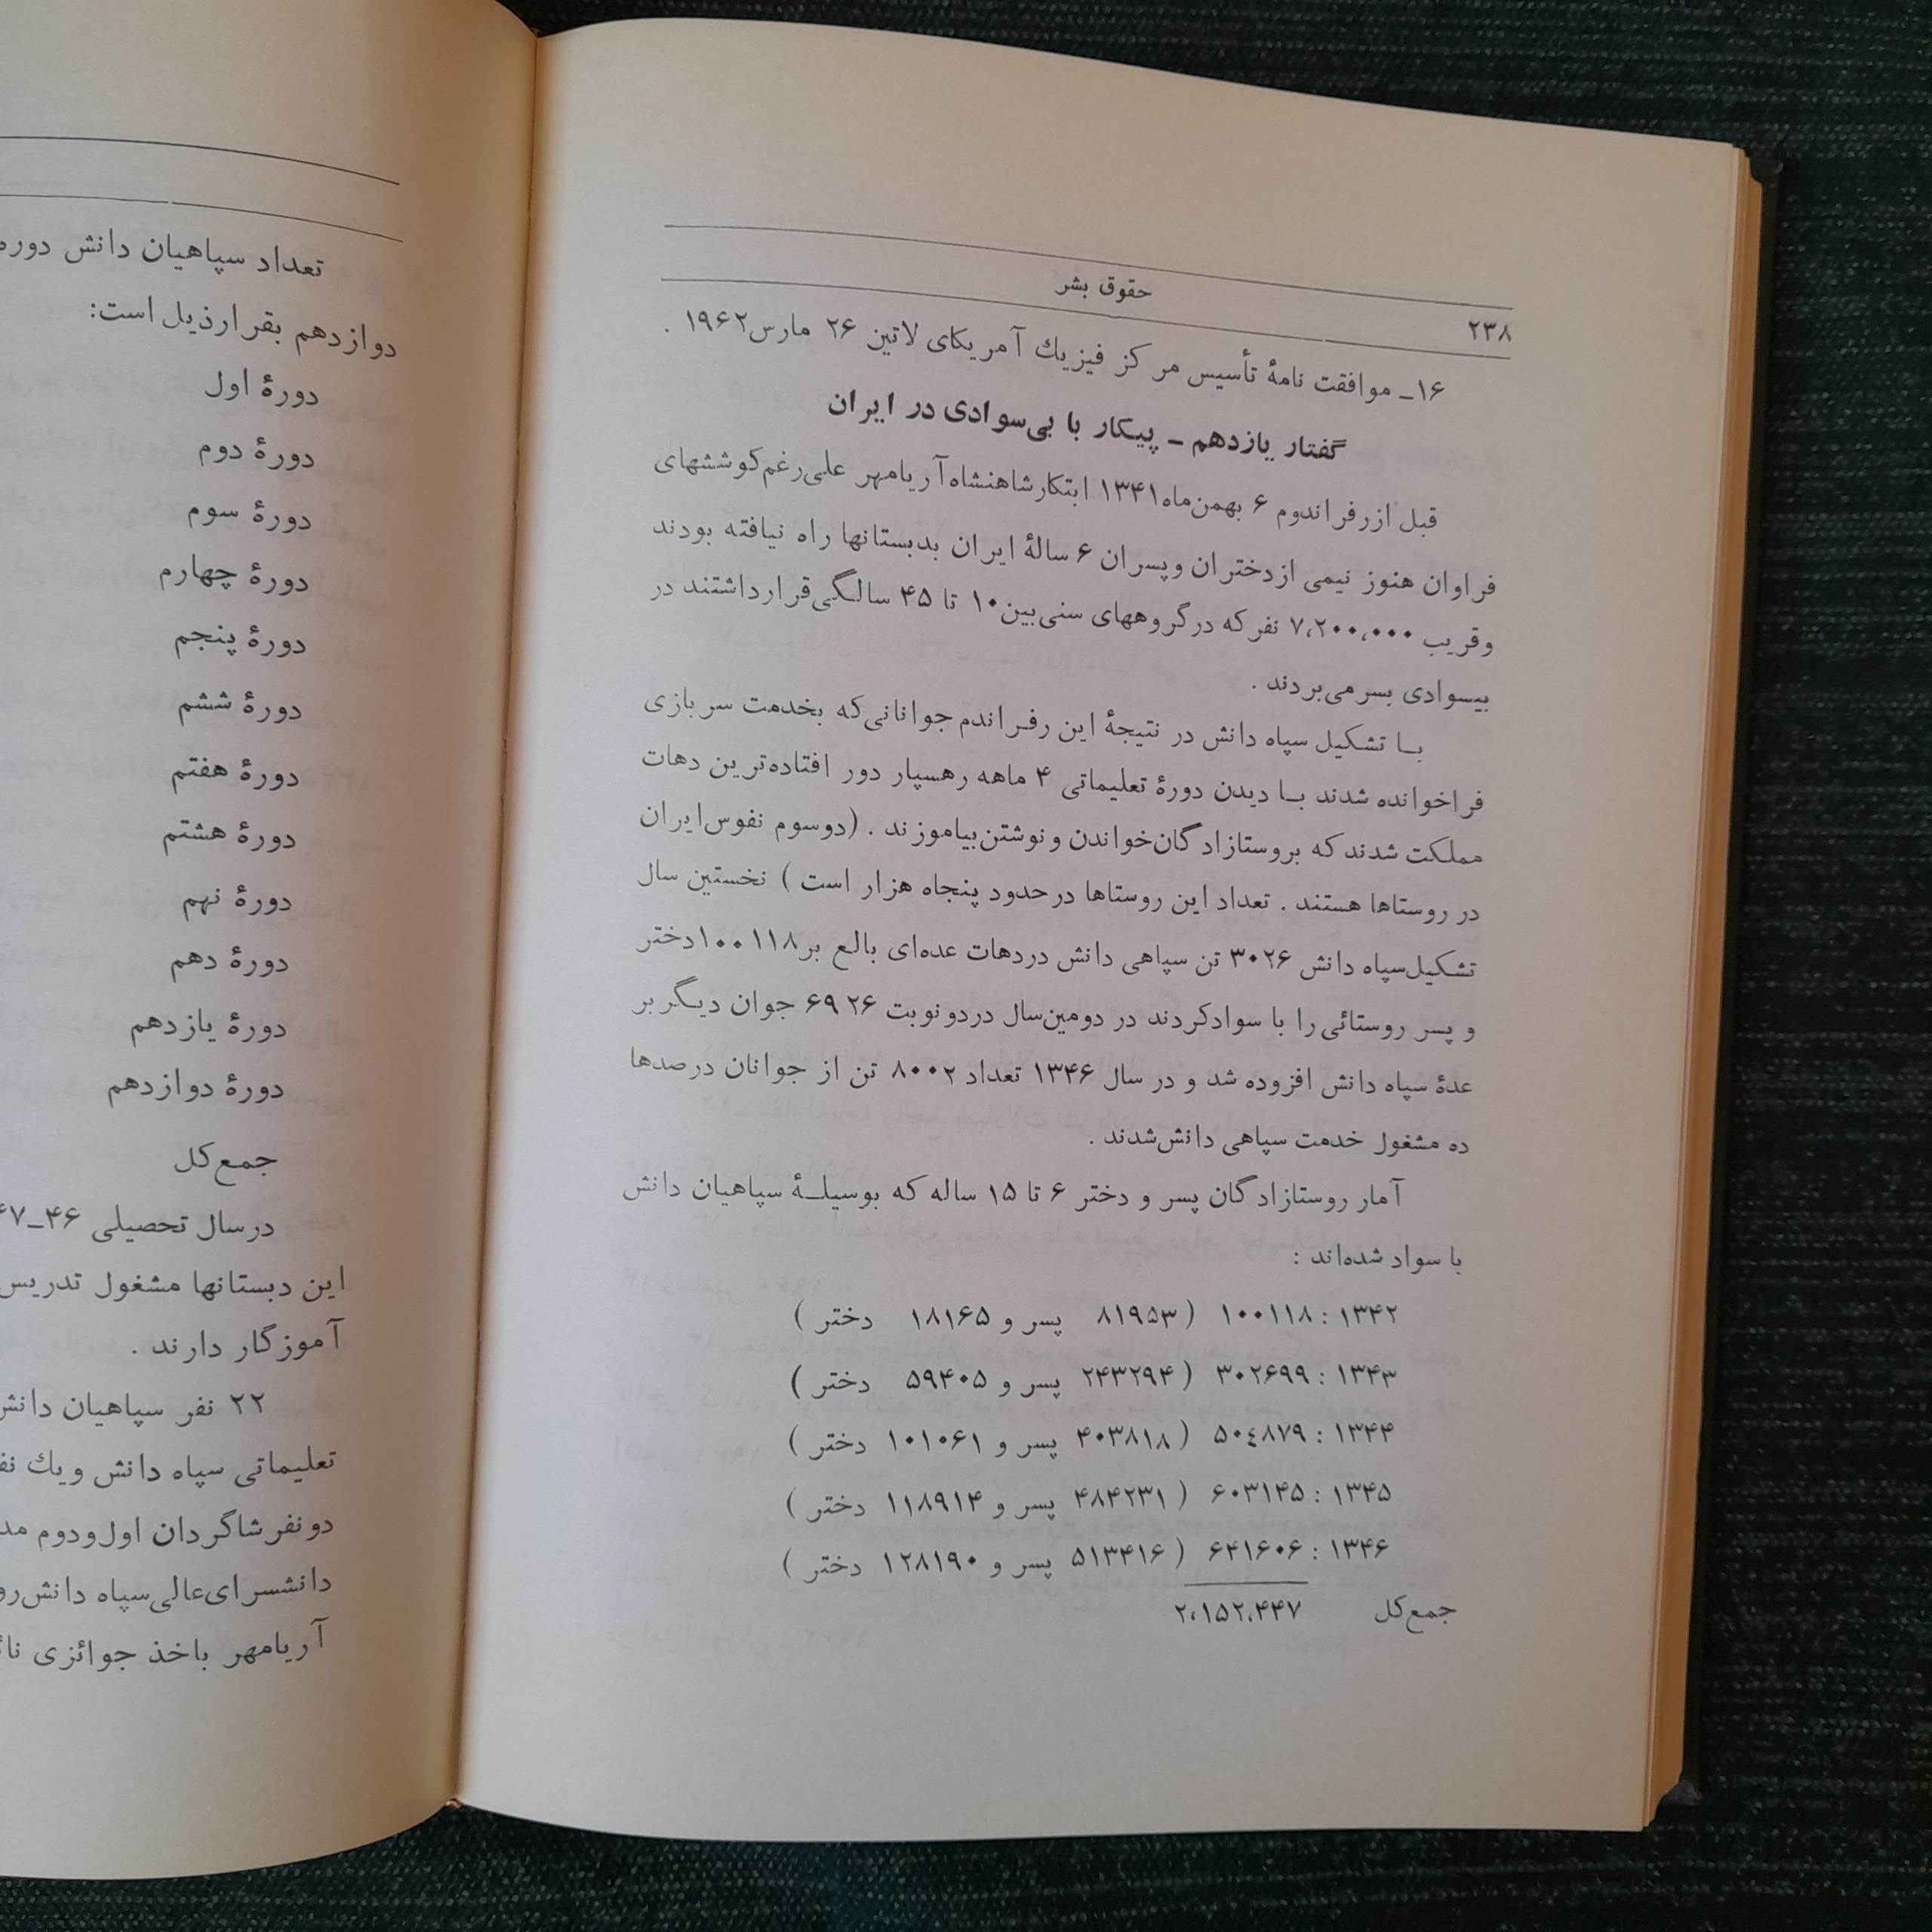 حقوق بشر
۲۳۸
۱۶ـ موافقت نامهٔ تأسیس مرکز فیزیك آمریکای لاتین ۲۶ مارس۱۹۶۲ .
گفتار یازدهم ـ پیکار با بی‌سوادی در ایران
قبل از رفراندوم ۶ بهمن‌ماه۱۳۴۱ ابتکار شاهنشاه آریامهر علی‌رغم کوششهای
فراوان هنوز نیمی از دختران و پسران ۶ سالهٔ ایران بدبستانها راه نیافته بودند
و قریب ۷،۲۰۰،۰۰۰ نفر که در گروههای سنی بین ۱۰ تا ۴۵ سالگی قرار داشتند در
بیسوادی بسر می‌بردند .
بـا تشکیل سپاه دانش در نتیجهٔ این رفراندم جوانانی که بخدمت سربازی
فراخوانده شدند بـا دیدن دورهٔ تعلیماتی ۴ ماهه رهسپار دور افتاده‌ترین دهات
مملکت شدند که بروستازادگان خواندن و نوشتن بیاموزند . (دوسوم نفوس ایران
در روستاها هستند . تعداد این روستاها در حدود پنجاه هزار است ) نخستین سال
تشکیل سپاه دانش ۳۰۲۶ تن سپاهی دانش در دهات عده‌ای بالع بر ۱۰۰۱۱۸ دختر
و پسر روستائی را با سواد کردند در دومین سال در دو نوبت ۶۹۲۶ جوان دیگر بر
عدهٔ سپاه دانش افزوده شد و در سال ۱۳۴۶ تعداد ۸۰۰۲ تن از جوانان در صدها
ده مشغول خدمت سپاهی دانش شدند .
آمار روستازادگان پسر و دختر ۶ تا ۱۵ ساله که بوسیلـهٔ سپاهیان دانش
با سواد شده‌اند :
۱۳۴۲ : ۱۰۰۱۱۸ ( ۸۱۹۵۳ پسر و ۱۸۱۶۵ دختر )
۱۳۴۳ : ۳۰۲۶۹۹ ( ۲۴۳۲۹۴ پسر و ۵۹۴۰۵ دختر )
۱۳۴۴ : ۵۰٤۸۷۹ ( ۴۰۳۸۱۸ پسر و ۱۰۱۰۶۱ دختر )
۱۳۴۵ : ۶۰۳۱۴۵ ( ۴۸۴۲۳۱ پسر و ۱۱۸۹۱۴ دختر )
۱۳۴۶ : ۶۴۱۶۰۶ ( ۵۱۳۴۱۶ پسر و ۱۲۸۱۹۰ دختر )
جمع کل ۲،۱۵۲،۴۴۷
تعداد سپاهیان دانش دوره
دوازدهم بقرار ذیل است:
دورهٔ اول
دورهٔ دوم
دورهٔ سوم
دورهٔ چهارم
دورهٔ پنجم
دورهٔ ششم
دورهٔ هفتم
دورهٔ هشتم
دورهٔ نهم
دورهٔ دهم
دورهٔ یازدهم
دورهٔ دوازدهم
جمع کل
در سال تحصیلی ۴۶ـ
این دبستانها مشغول تدریس
آموزگار دارند .
۲۲ نفر سپاهیان دانش
تعلیماتی سپاه دانش و یك
دو نفر شاگردان اول و دوم
دانشسرای عالی سپاه دانش
آریامهر باخذ جوائزی